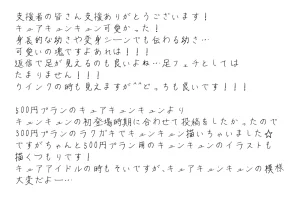 支援者の皆さん支援ありがとうございます！
キュアキュンキュン可愛かった！
身長的な幼さや変身シーンでも伝わる幼さ…
可愛いの塊ですよあれは！！！
返信で足が見えるのも良いよね…足フェチとしては
たまりません！！！
ウインクの時も見えますが^^どっちも良いです！！！

500円プランのキュアキュンキュンより
キュンキュンの初登場時期に合わせて投稿をしたかったので
300円プランのラフガキでキュンキュン描いちゃいました☆
ですがちゃんと500円プラン用のキュンキュンのイラストも
描くつもりです！
キュアアイドルの時もそいですが、キュアキュンキュンの模様
大変だよー…